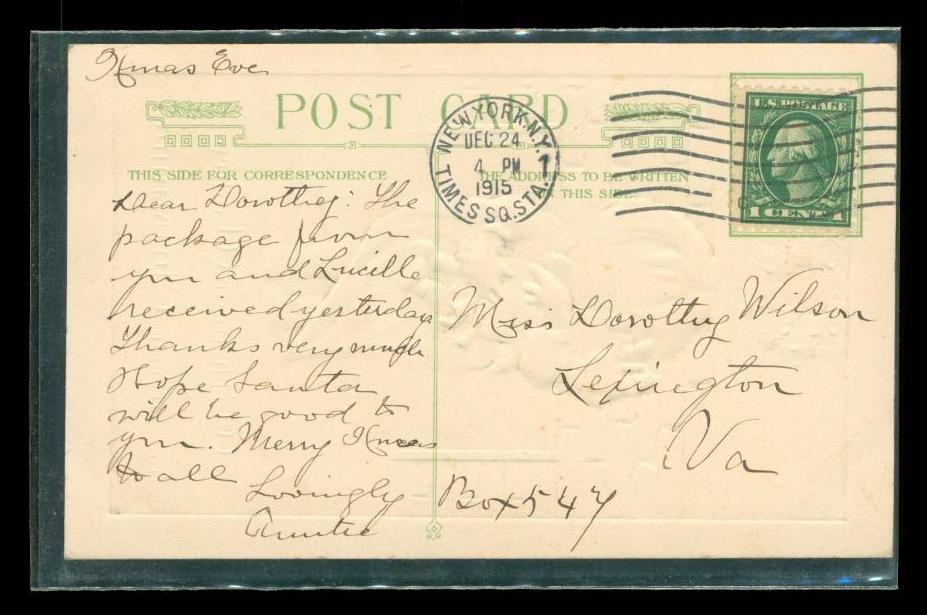 Xmas Eve
POST CARD
THIS SIDE FOR CORRESPONDENCE
THE ADDRESS TO BE WRITTEN
THIS SIDE
NEW YORK, N.Y. 1
DEC 24
4 PM
1915
TIMES SQ. STA.
U.S. POSTAGE
1 CENT 1
Dear Dorothy: The
package from
you and Lucille
received yesterday
Thanks very much
Hope Santa
will be good to
you. Merry Xmas
to all
Lovingly
Auntie
Miss Dorothy Wilson
Lexington
Va
Box 547